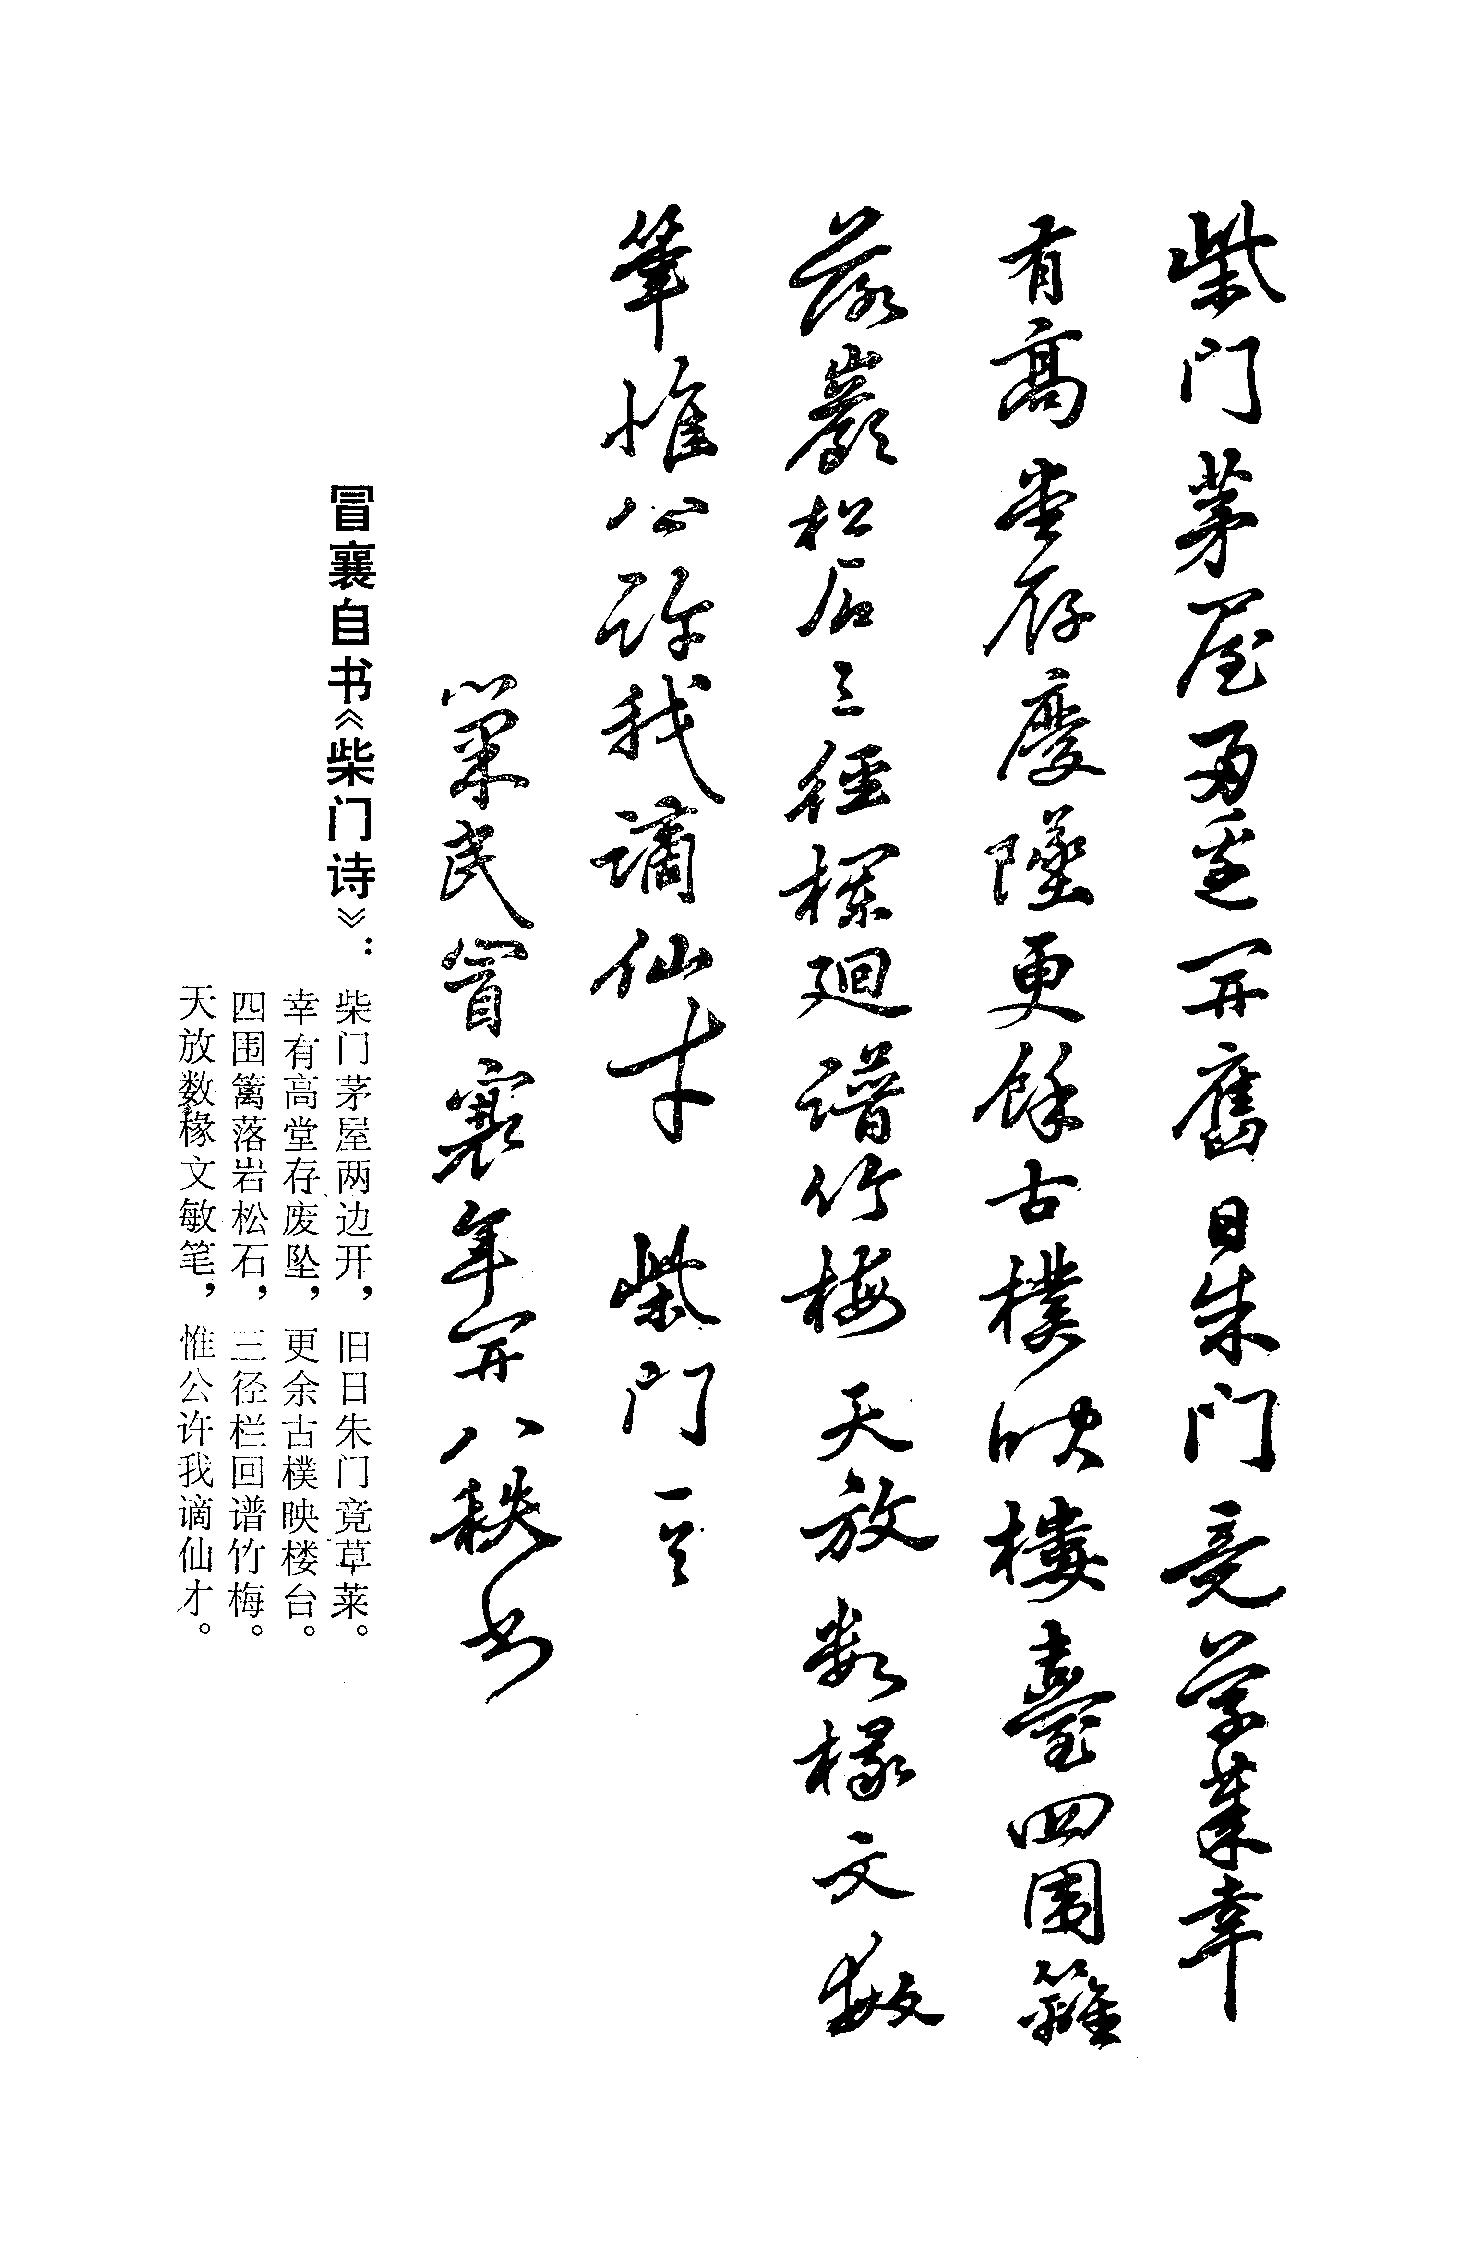 柴門茅屋两邊開舊日朱門竟草萊幸
有高堂存廢墜更餘古樸映樓臺四圍籬
落巖松石三徑欄迴譜竹梅天放数椽文敏
筆惟公許我謫仙才 柴門一首
巢民冒襄年開八秩書
冒襄自书《柴门诗》：
柴门茅屋两边开，旧日朱门竟草莱。
幸有高堂存废坠，更余古樸映楼台。
四围篱落岩松石，三径栏回谱竹梅。
天放数椽文敏笔，惟公许我谪仙才。